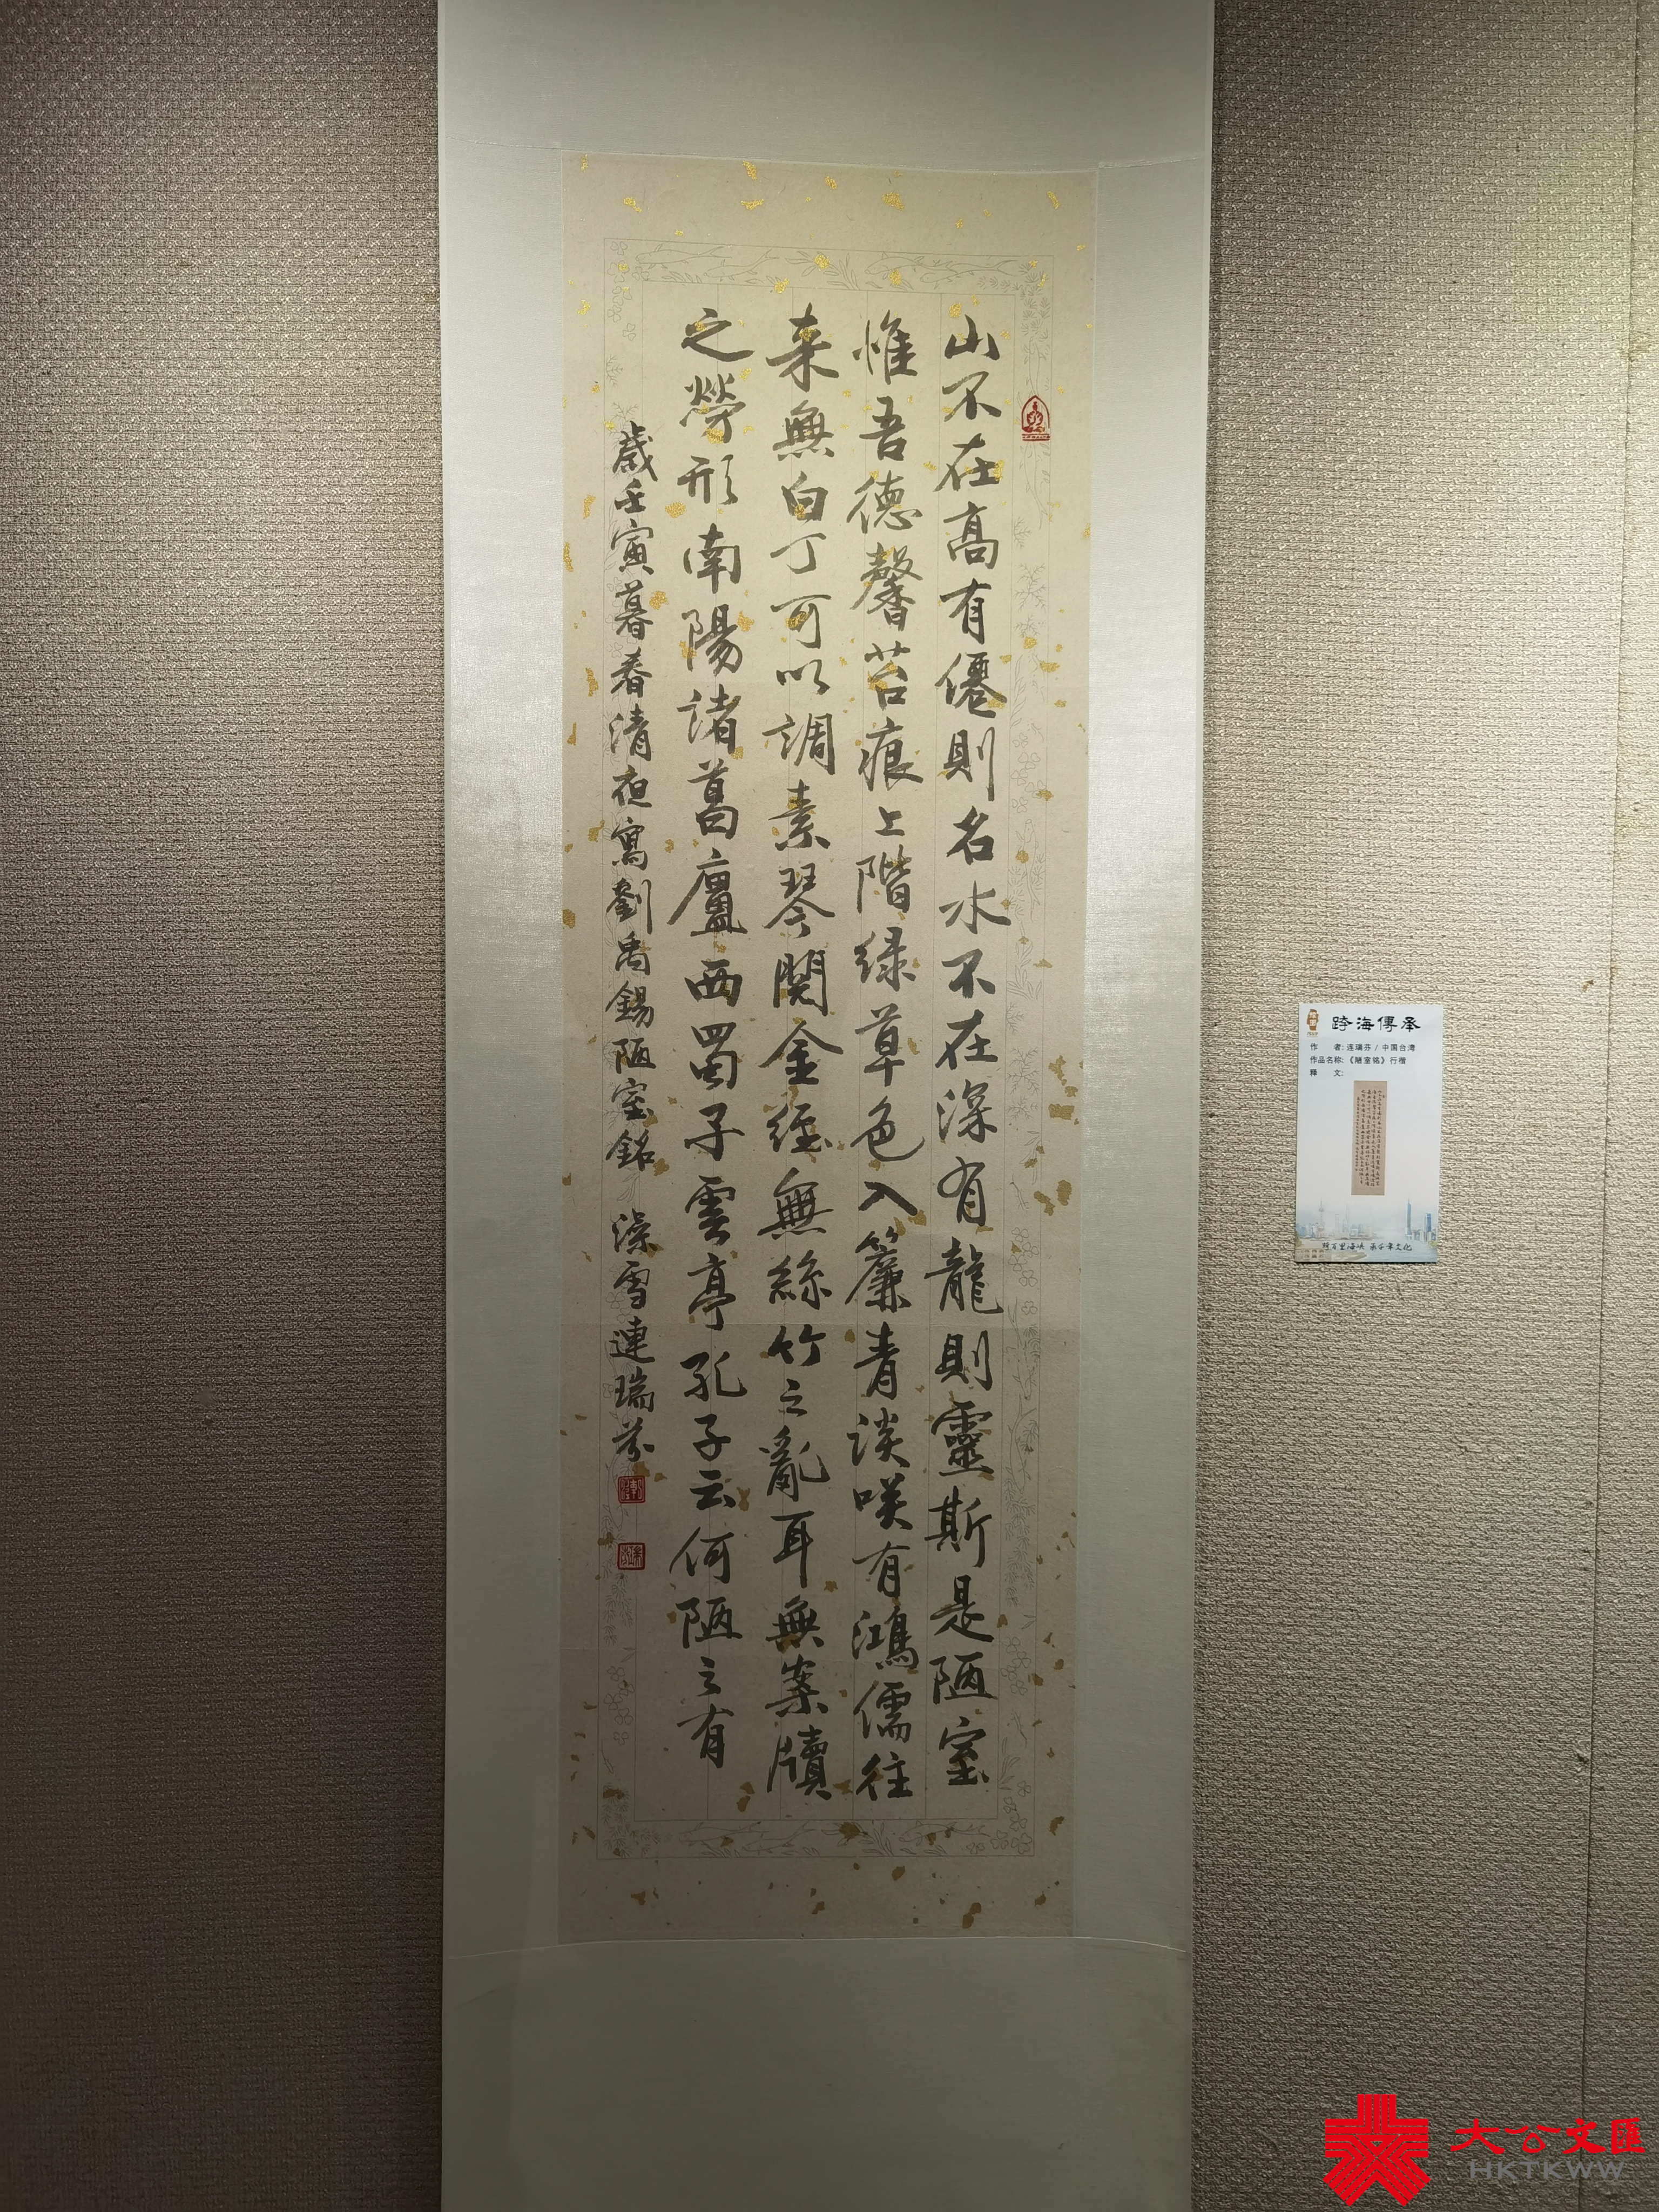 山不在高有僊則名水不在深有龍則靈斯是陋室
惟吾德馨苔痕上階綠草色入簾青談咲有鴻儒往
来無白丁可以調素琴閱金經無絲竹之亂耳無案牘
之勞形南陽諸葛廬西蜀子雲亭孔子云何陋之有
歲壬寅暮春清夜寫劉禹錫陋室銘 深雪連瑞芬
跨海傳承
作 者: 连瑞芬 / 中国台湾
作品名称: 《陋室铭》行楷
釋 文:
跨百里海峡 承千年文化
大公文匯
HKTKWW